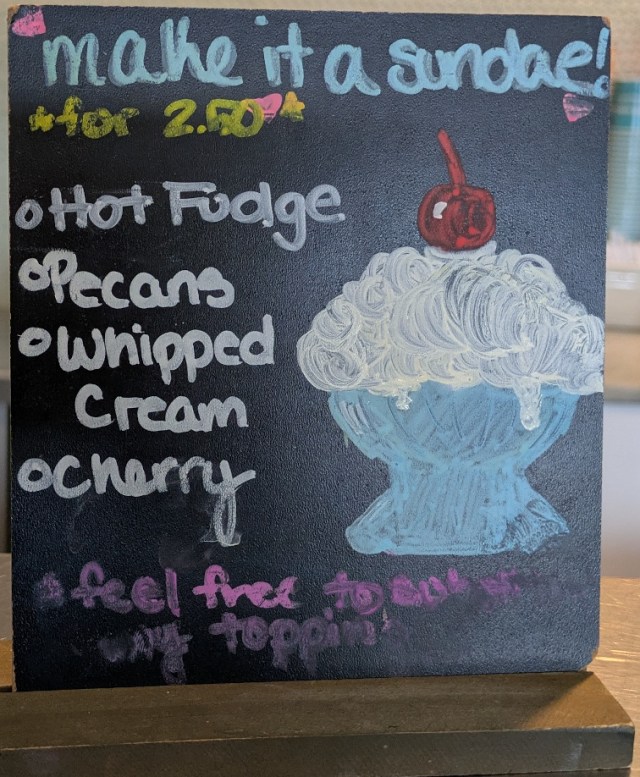 make it a sundae!
for 2.50
Hot Fudge
Pecans
Whipped
Cream
Cherry
feel free to sub
any topping